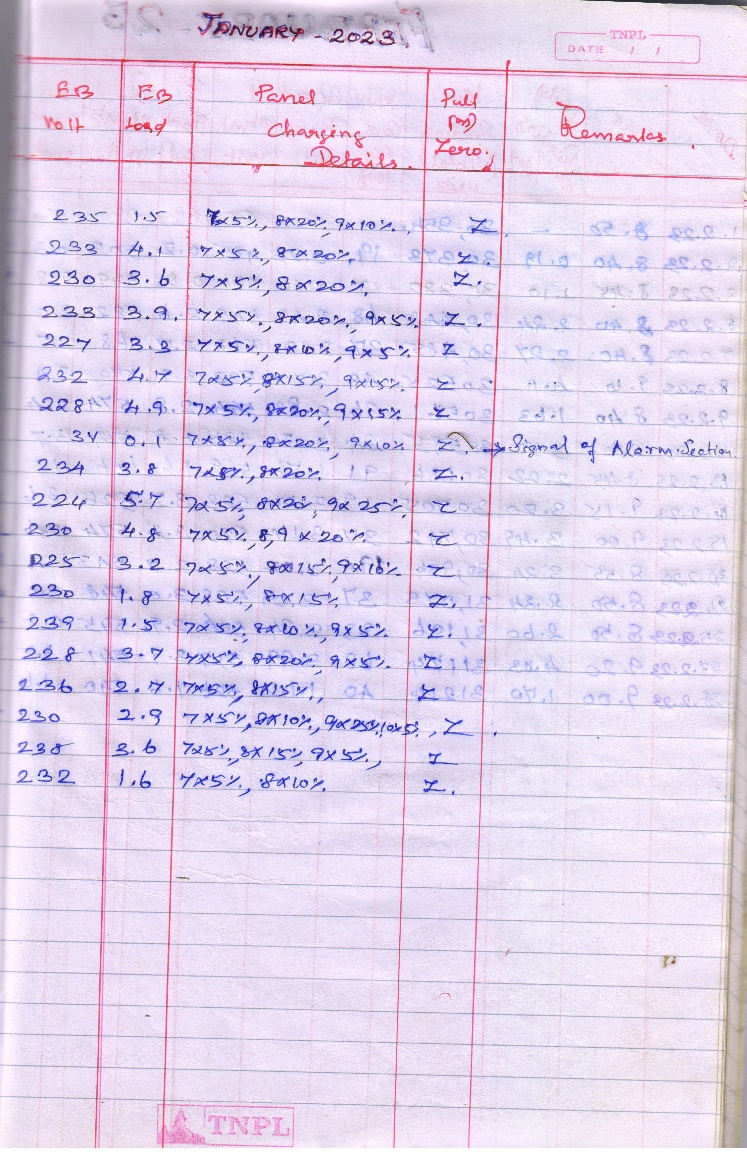 JANUARY - 2023
TNPL
DATE / /
EB Volt EB Load Panel Charging Details. Full (or) Zero. Remarks.
235 1.5 7x5%, 8x20%, 9x10%., Z.
233 4.1 7x5%, 8x20%. Z.
230 3.6 7x5%, 8x20%. Z.
233 3.9. 7x5%, 8x20%, 9x5%. Z.
227 3.3 7x5%, 8x10%, 9x5%. Z
232 4.7 7x5%, 8x15%, 9x15%. Z
228 4.9 7x5%, 8x20%, 9x15%. Z
34 0.1 7x5%, 8x20%, 9x10% Z. → Signal of Alarm. Section
234 3.8 7x5%, 8x20%. Z.
224 5.7 7x5%, 8x20%, 9x25%. Z
230 4.8 7x5%, 8,9 x 20%. Z
225 3.2 7x5%, 8x15%, 9x10%. Z
230 1.8 7x5%, 8x15%. Z.
239 1.5 7x5%, 8x10%, 9x5%. Z.
228 3.7 7x5%, 8x20%, 9x5%. Z
236 2.7 7x5%, 8x15%, Z
230 2.9 7x5%, 8x10%, 9x25% 10x5%, Z.
238 3.6 7x5%, 8x15%, 9x5%, Z
232 1.6 7x5%, 8x10%. Z.
TNPL